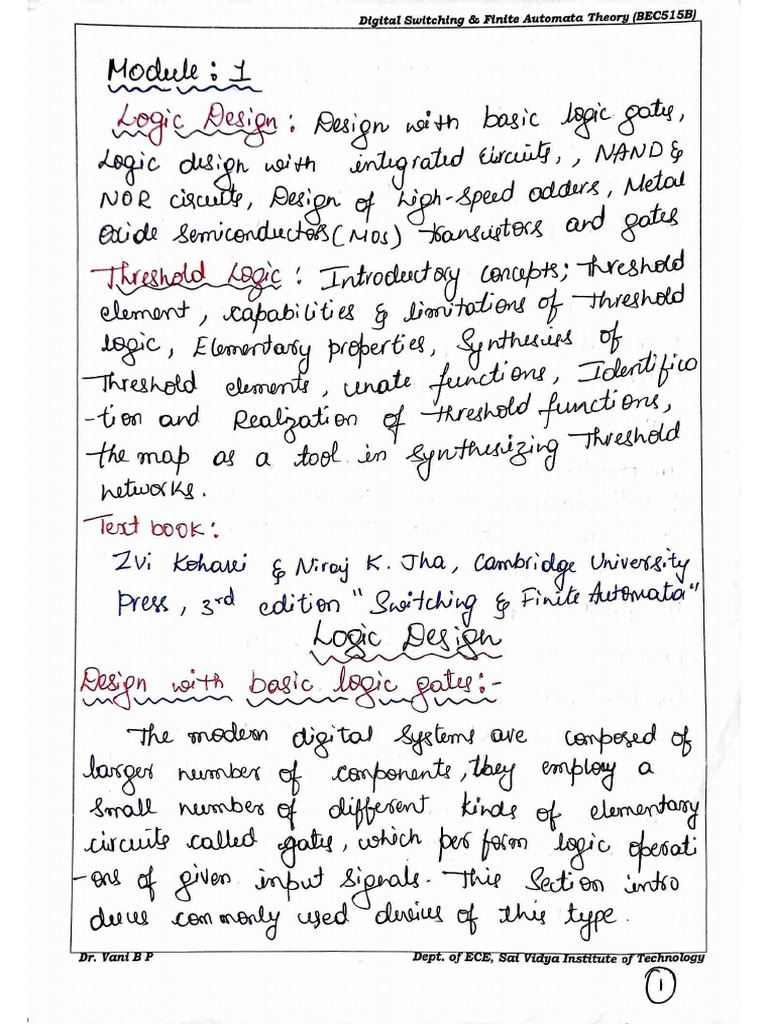 Digital Switching & Finite Automata Theory (BEC515B)
Module : 1
Logic Design : Design with basic logic gates,
Logic design with integrated circuits, , NAND &
NOR circuits, Design of high-speed adders, Metal
Oxide Semiconductors (MOS) transistors and gates
Threshold Logic : Introductory concepts; threshold
element, capabilities & limitations of threshold
logic, Elementary properties, Synthesis of
Threshold elements, unate functions, Identifica
-tion and Realization of threshold functions,
the map as a tool in synthesizing threshold
networks.
Text book :
Zvi Kohavi & Niraj K. Jha, Cambridge University
Press, 3rd edition "Switching & Finite Automata"
Logic Design
Design with basic logic gates:-
The modern digital systems are composed of
larger number of components, they employ a
small number of different kinds of elementary
circuits called gates, which per form logic operati
-ons of given input signals. This section intro
duces commonly used devices of this type.
Dr. Vani B P
Dept. of ECE, Sai Vidya Institute of Technology
1